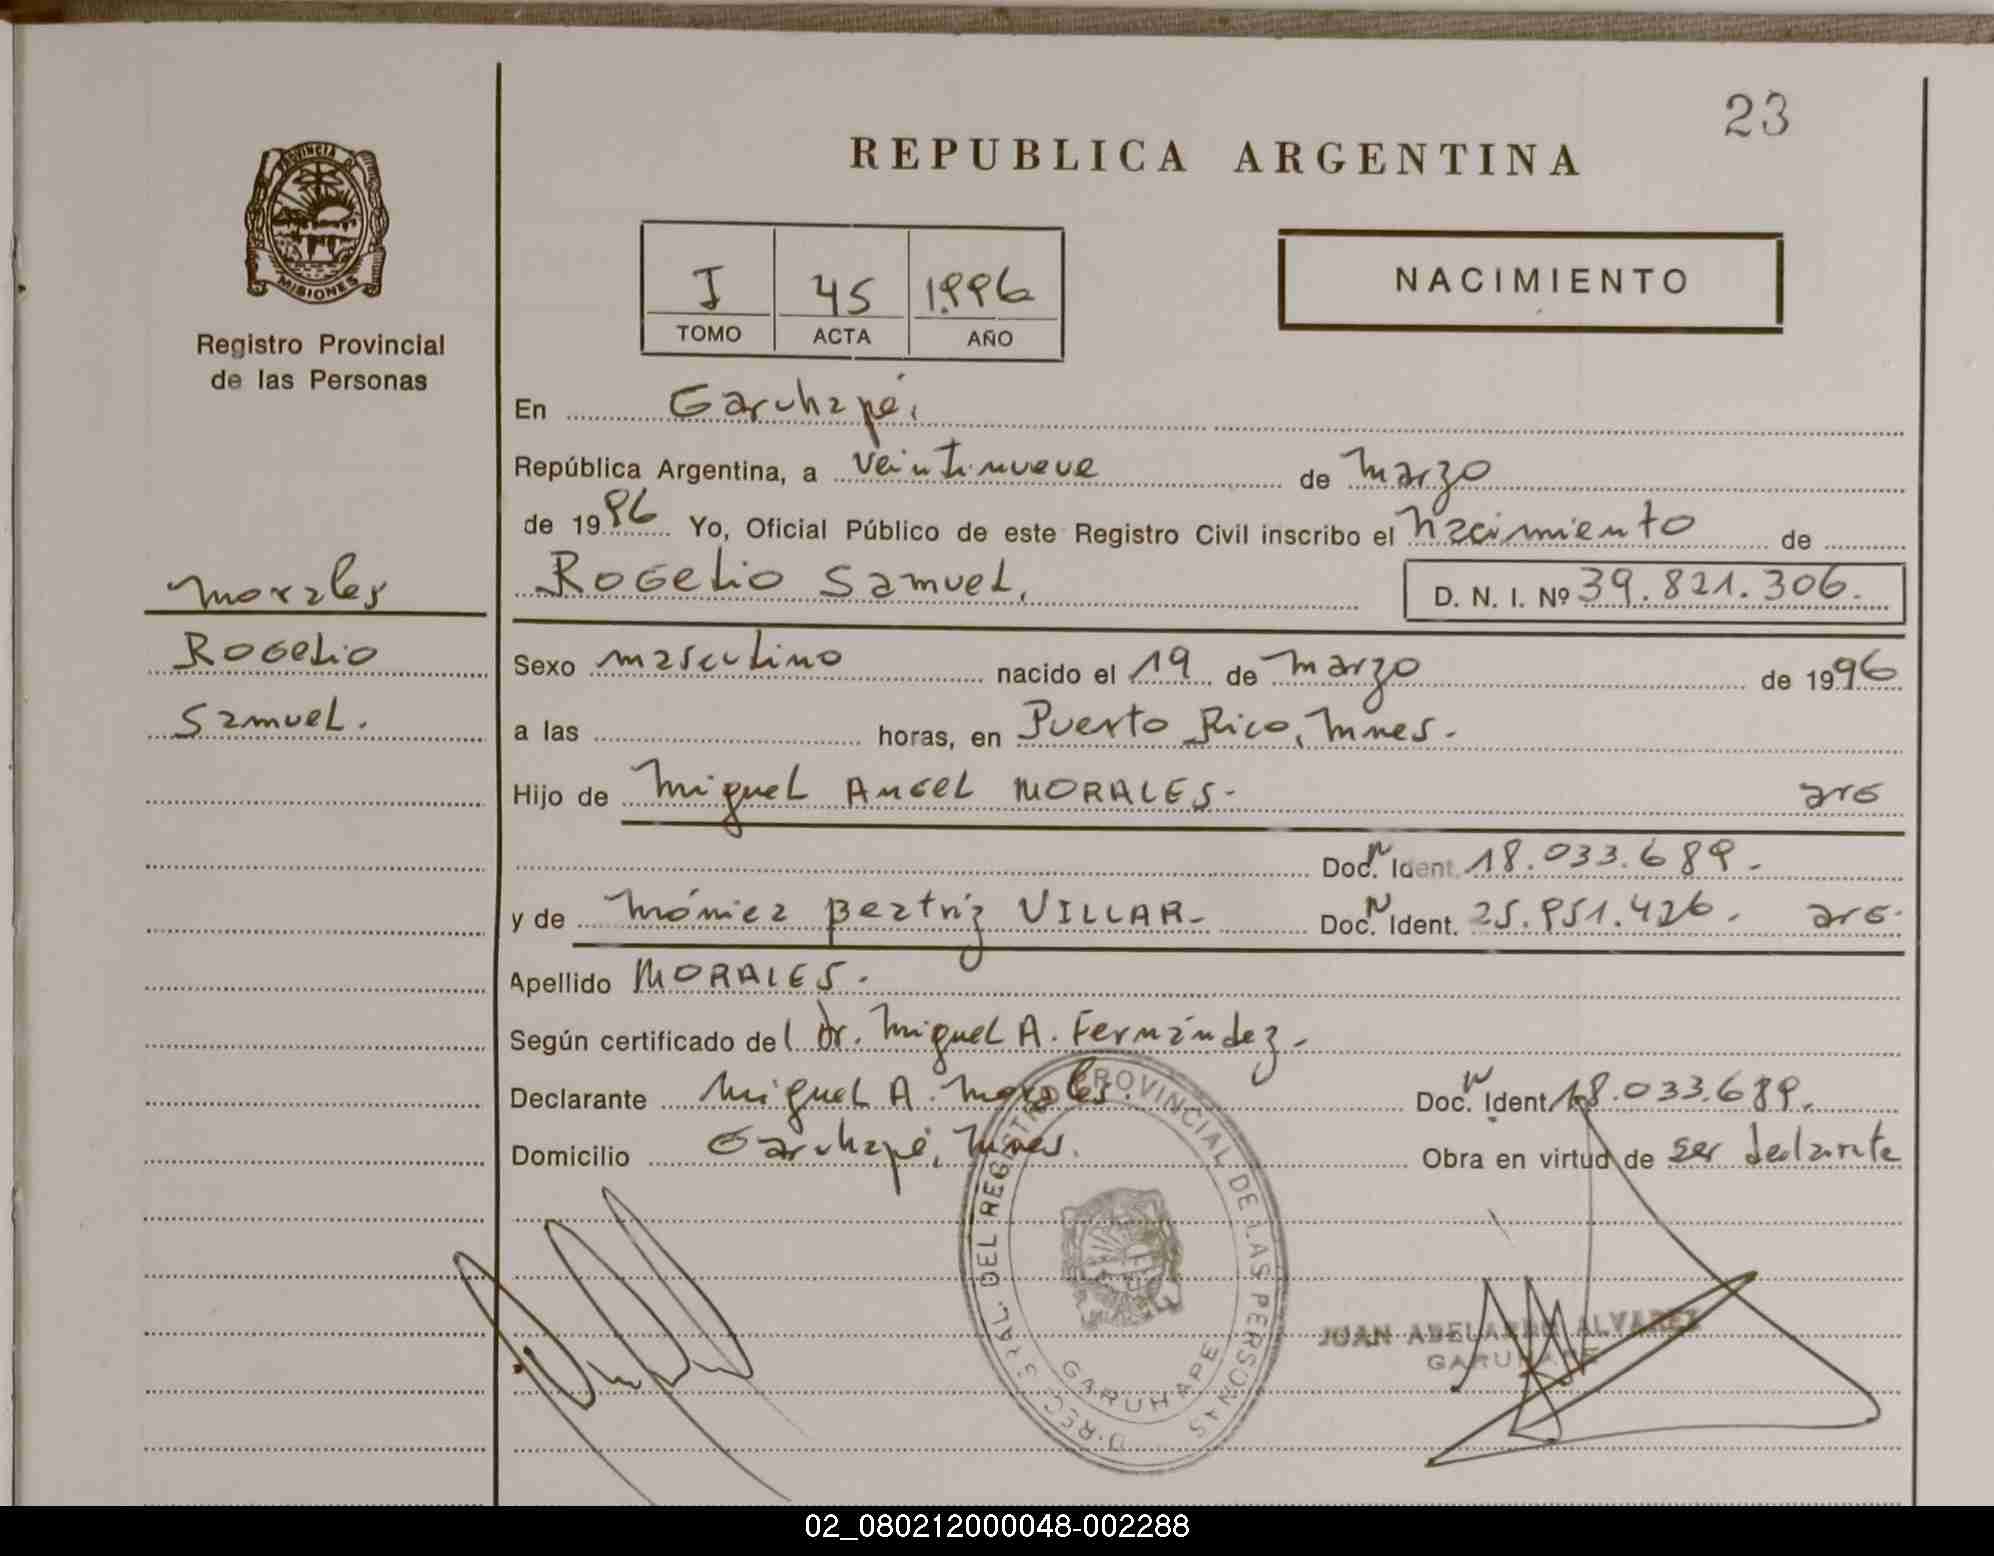 23
REPUBLICA ARGENTINA
PROVINCIA DE
MISIONES
Registro Provincial
de las Personas
I 45 1996
TOMO ACTA AÑO
NACIMIENTO
En Garuhapé,
República Argentina, a veintinueve de marzo
de 1996 Yo, Oficial Público de este Registro Civil inscribo el nacimiento de
Rogelio Samuel, D. N. I. Nº 39.821.306.
Morales
Rogelio
Samuel.
Sexo masculino nacido el 19 de marzo de 1996
a las horas, en Puerto Rico, Mnes.
Hijo de Miguel Angel MORALES- arg
Doc. N Ident. 18.033.689.
y de Mónica Beatriz VILLAR- Doc. N Ident. 25.951.426. arg.
Apellido MORALES.
Según certificado del Dr. Miguel A. Fernández.
Declarante Miguel A. Morales. Doc. N Ident. 18.033.689.
Domicilio Garuhapé, Mnes. Obra en virtud de ser declarante
D-REC. GRAL. DEL REGISTRO PROVINCIAL DE LAS PERSONAS
GARUHAPE
JUAN ABELARDO ALVAREZ
GARUHAPE
02_080212000048-002288